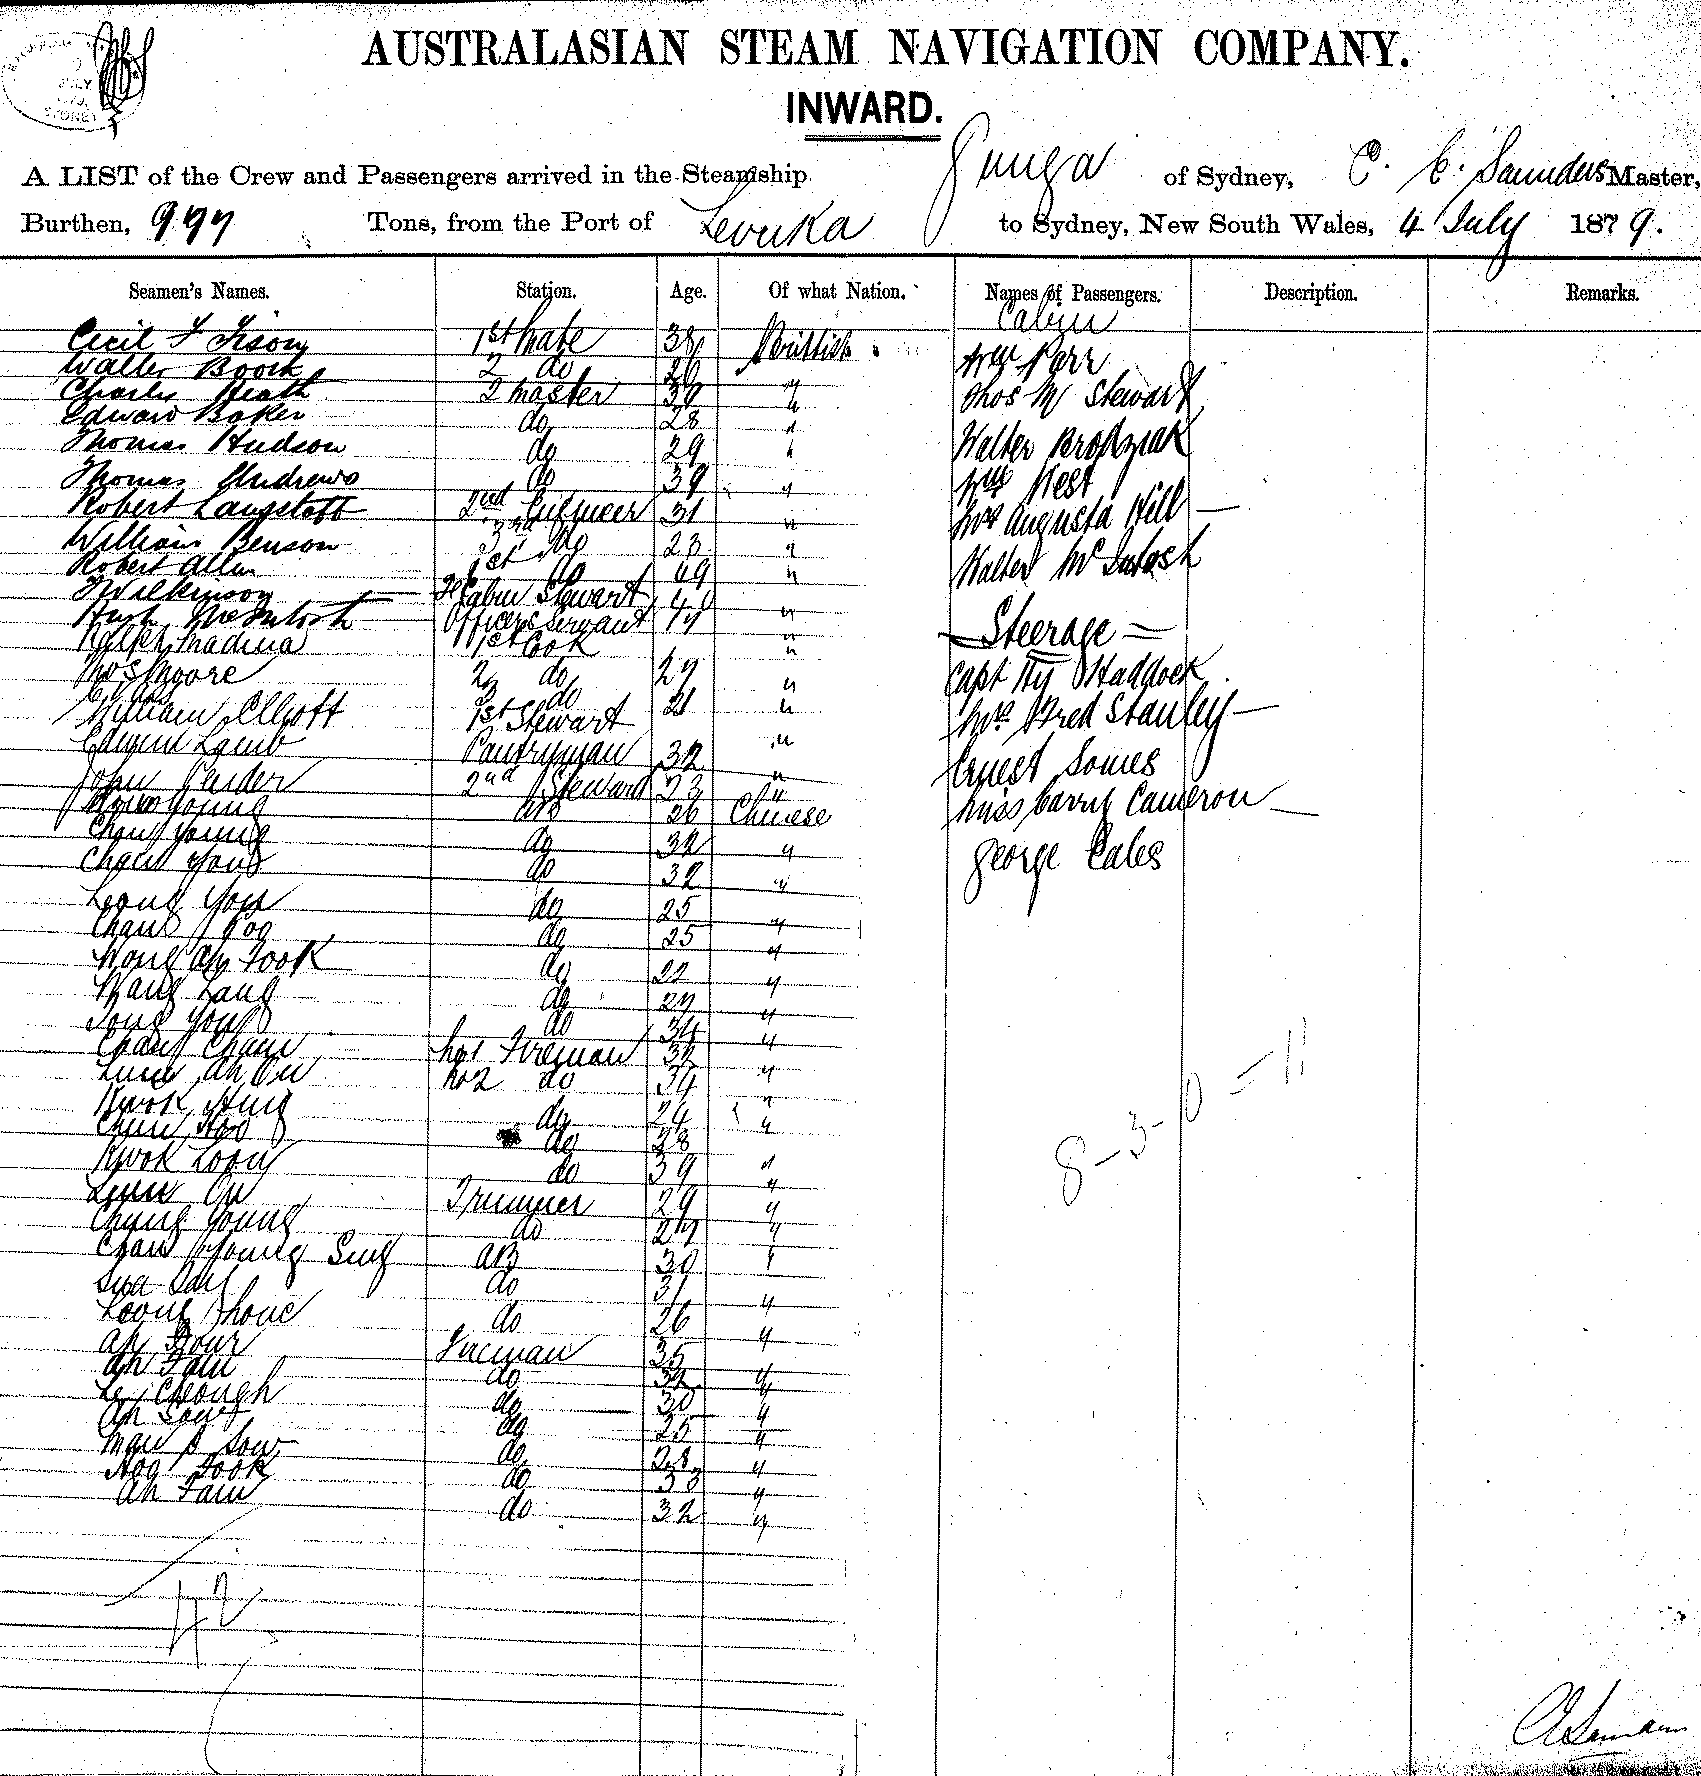 AUSTRALASIAN STEAM NAVIGATION COMPANY.
INWARD.
A LIST of the Crew and Passengers arrived in the Steamship Gunga of Sydney, C. C. Saunders Master,
Burthen, 997 Tons, from the Port of Levuka to Sydney, New South Wales, 4 July 1879.
Seamen's Names. Station. Age. Of what Nation. Names of Passengers. Description. Remarks.
Cabin
Cecil F Tison 1st Mate 38 Brittish
Walter Boock 2 do
Wm Parr
Charles Heath 2 Master 39 "
Thos M Stewart
Edward Baker do 28 "
Thomas Hudson do 29 "
Walter Brodziak
Thomas Andrews do 39 "
Wm West
Robert Langstaff 2nd Engineer 31 "
Mrs Augusta Hill
William Benson 3rd do 23 "
Robert Allen 1st do 49 "
Walter McIntosh
Wilkinson Cabin Stewart "
Hugh McIntosh Officers Servant "
Steerage
Ralph Madina 1st Cook "
Thos Moore 2 do 29 "
Capt Hy Haddock
3 do 21 "
William Elliott 1st Stewart "
Mrs Fred Stanley
Edwin Lamb Pantryman 32 "
Ernest Somes
John Pender 2nd Steward 23 "
Young AB 26 Chinese
Miss Carry Cameron
Chong Young do 32 "
Chan Yong do 32 "
George Eales
Leong You do 25 "
Chan Foo do 25 "
Wong Ah Fook do 22 "
Wang Lang do 29 "
Tong You do 34 "
Chan Cham No 1 Fireman 32 "
Lum Ah On No 2 do 34 "
Kwok Hing do 24 "
Chun Hoo do 28 "
Kwok Loong do 39 "
8-3-0=11
Lum On Trimmer 29 "
Chung Young do 27 "
Chan Young Sing AB 30 "
do 31 "
Leong do 26 "
Ah Four Fireman 35 "
Ah Fam do 32 "
Le Cheough do 30 "
Ah do 25 "
Man Sow do 28 "
Hog Fook do 33 "
Ah Fam do 32 "
42